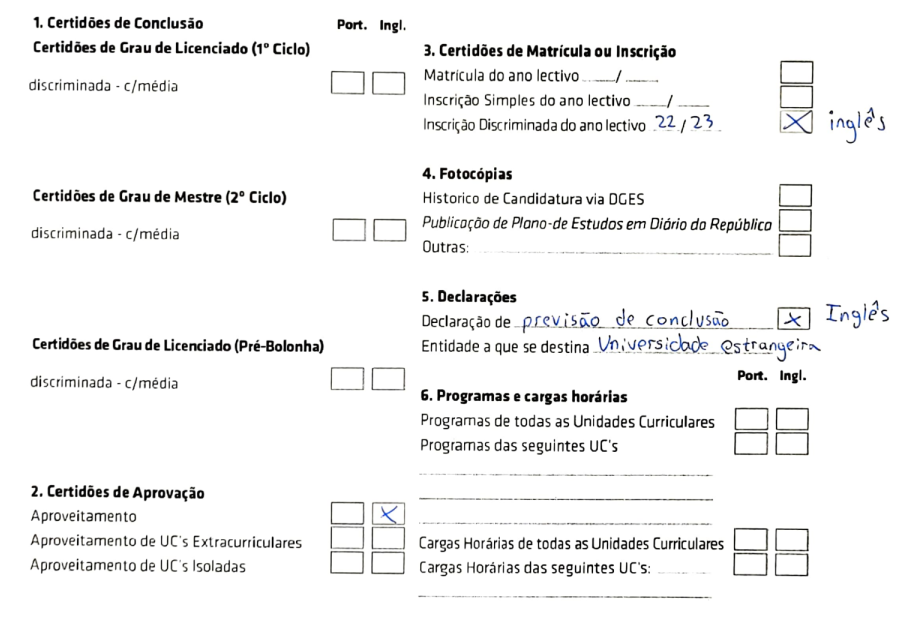 1. Certidões de Conclusão Port. Ingl.
Certidões de Grau de Licenciado (1º Ciclo)
discriminada - c/média
Certidões de Grau de Mestre (2º Ciclo)
discriminada - c/média
Certidões de Grau de Licenciado (Pré-Bolonha)
discriminada - c/média
2. Certidões de Aprovação
Aproveitamento X
Aproveitamento de UC's Extracurriculares
Aproveitamento de UC's Isoladas
3. Certidões de Matrícula ou Inscrição
Matrícula do ano lectivo ____/____
Inscrição Simples do ano lectivo ____/____
Inscrição Discriminada do ano lectivo 22/23 X inglês
4. Fotocópias
Historico de Candidatura via DGES
Publicação de Plano-de Estudos em Diário da República
Outras:
5. Declarações
Declaração de previsão de conclusão X Inglês
Entidade a que se destina Universidade estrangeira
Port. Ingl.
6. Programas e cargas horárias
Programas de todas as Unidades Curriculares
Programas das seguintes UC's
Cargas Horárias de todas as Unidades Curriculares
Cargas Horárias das seguintes UC's: